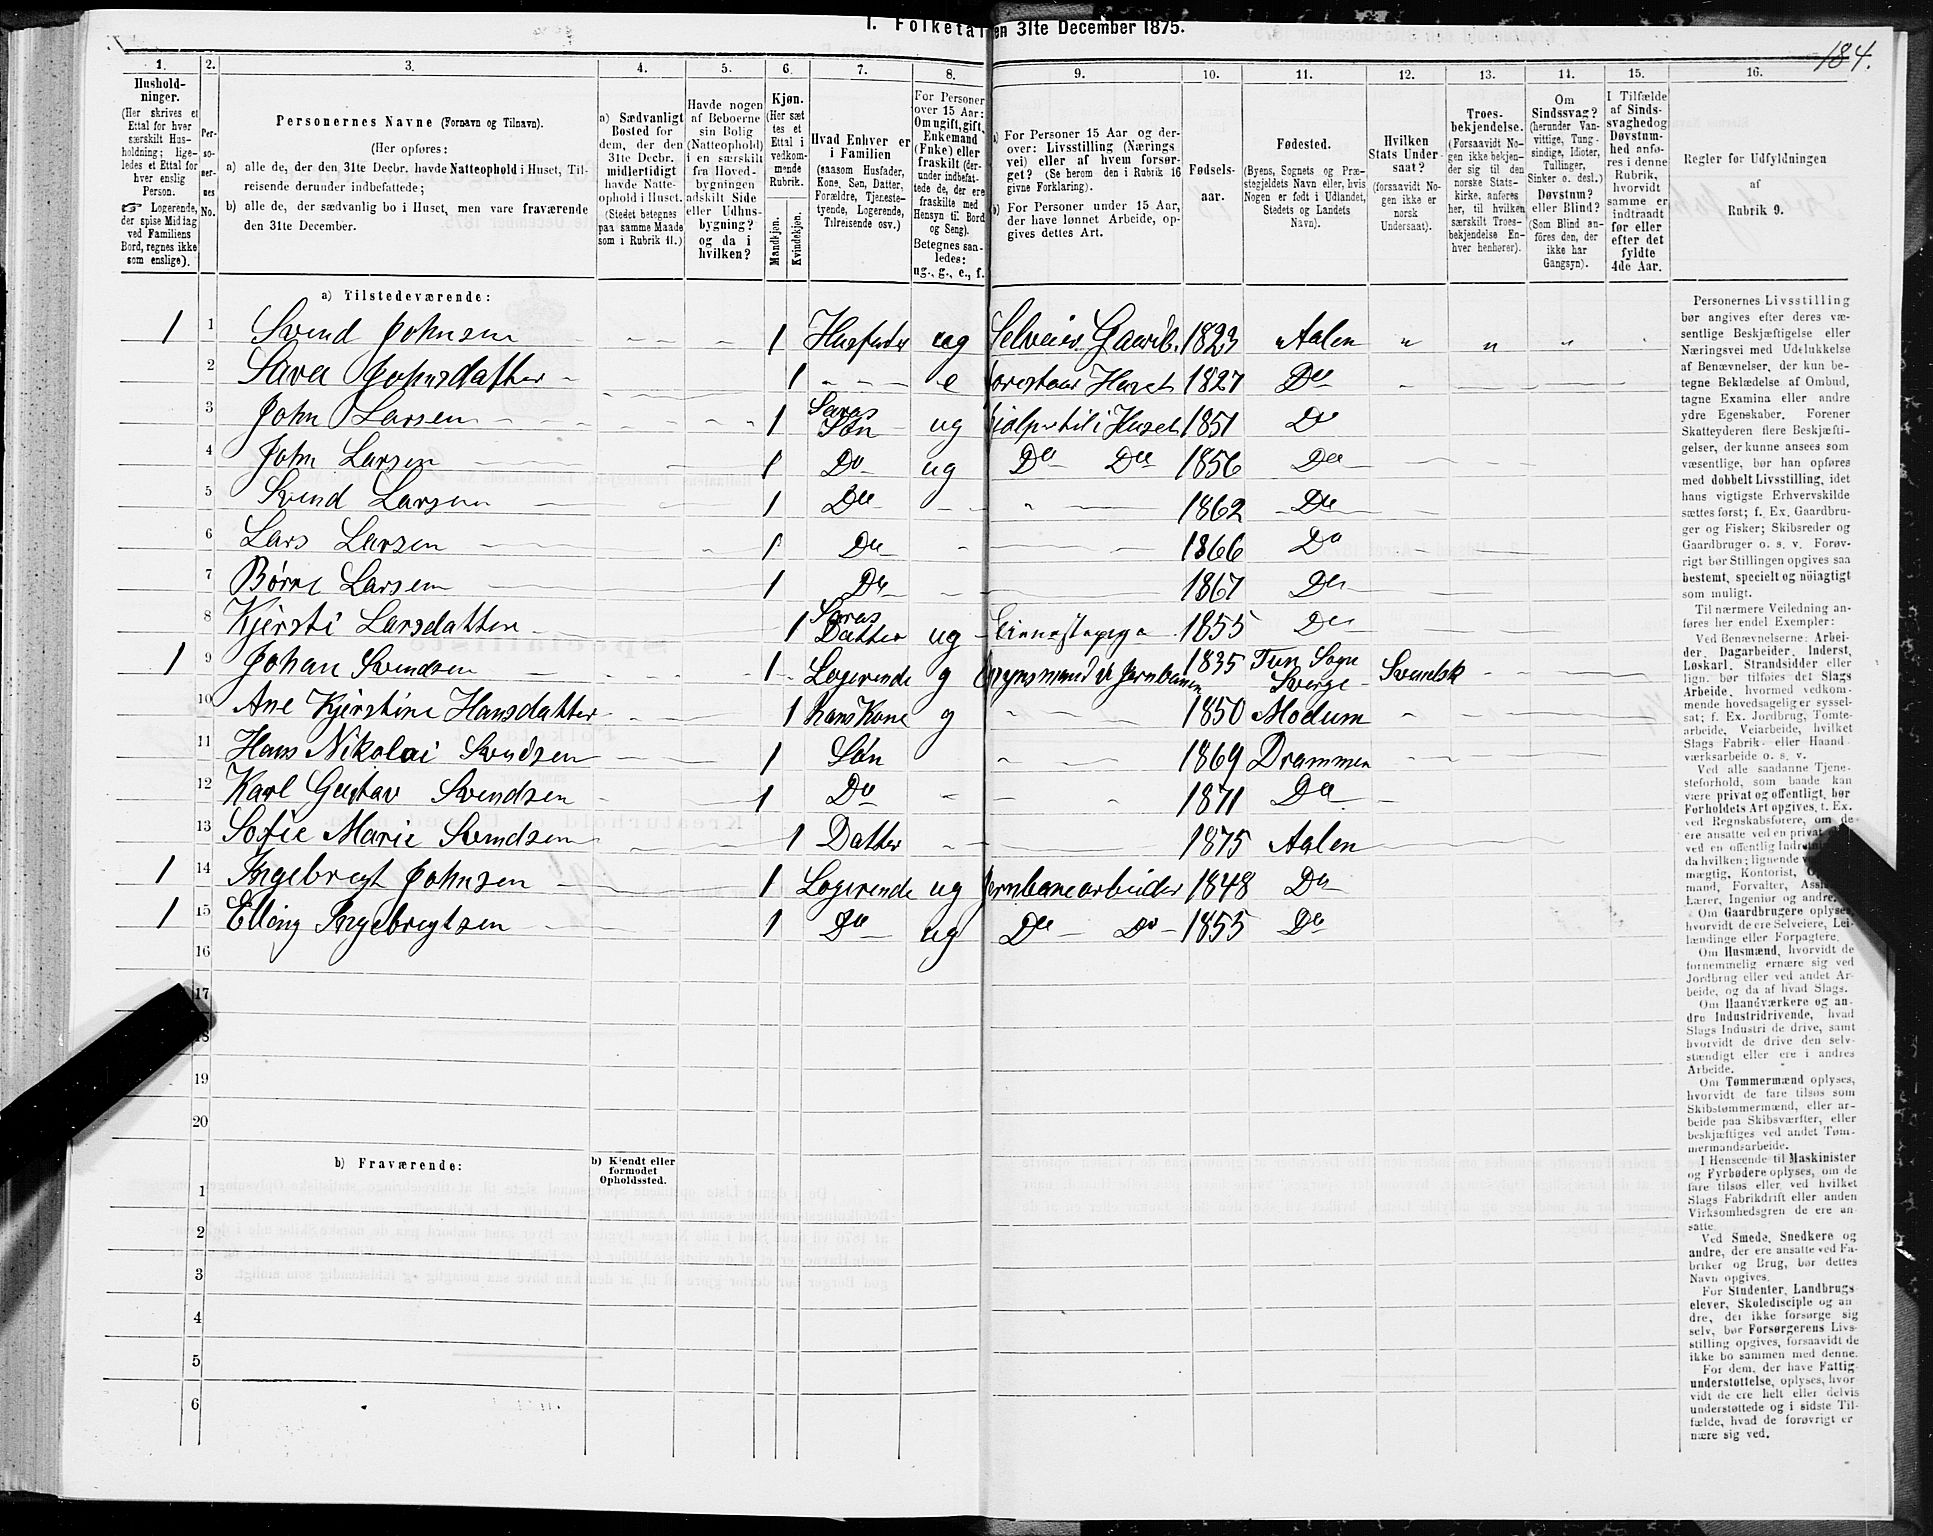 I. Folketal den 31te December 1875.
184.
1. 2. 3. 4. 5. 6. 7. 8. 9. 10. 11. 12. 13. 14. 15. 16.
Hushold-
ninger.
(Her skrives et
Ettal for hver
særskilt Hus-
holdning; lige-
ledes et Ettal for
hver enslig
Person.
☞ Logerende,
der spise Middag
ved Familiens
Bord, regnes ikke
som enslige).
Per-
so-
ner-
nes
No.
Personernes Navne (Fornavn og Tilnavn).
(Her opføres:
a) alle de, der den 31te Decbr. havde Natteophold i Huset, Til-
reisende derunder indbefattede;
b) alle de, der sædvanlig bo i Huset, men vare fraværende
den 31te December.
a) Sædvanligt
Bosted for
dem, der den
31te Decbr.
midlertidigt
havde Natte-
ophold i Huset.
(Stedet betegnes
paa samme Maade
som i Rubrik 11.)
Havde nogen
af Beboerne
sin Bolig
(Natteophold)
i en særskilt
fra Hoved-
bygningen
adskilt Side
eller Udhus-
bygning?
og da i
hvilken?
Kjøn.
(Her sæt-
tes et
Ettal i
vedkom-
mende
Rubrik.
Mandkjøn.
Kvindekjøn.
Hvad Enhver er
i Familien
(saasom Husfader,
Kone, Søn, Datter,
Forældre, Tjeneste-
tyende, Logerende,
Tilreisende osv.)
For Personer
over 15 Aar:
Om ugift, gift,
Enkemand
(Enke) eller
fraskilt (der-
under indbefat-
tede de, der ere
fraskilte med
Hensyn til Bord
og Seng).
Betegnes saa-
ledes:
ug., g., e., f.
a) For Personer 15 Aar og der-
over: Livsstilling (Nærings
vei) eller af hvem forsør-
get? (Se herom den i Rubrik 16
givne Forklaring).
b) For Personer under 15 Aar,
der have lønnet Arbeide, op-
gives dettes Art.
Fødsels-
aar.
Fødested.
(Byens, Sognets og Præ-
stegjeldets Navn eller, hvis
Nogen er født i Udlandet,
Stedets og Landets
Navn).
Hvilken
Stats Under-
saat?
(forsaavidt No-
gen ikke er
norsk
Undersaat).
Troes-
bekjendelse.
(Forsaavidt No-
gen ikke bekjen-
der sig til den
norske Stats-
kirke, anføres
her, til hvilken
særskilt Troes-
bekjendelse En-
hver henhører).
Om
Sindssvag?
(herunder Van-
vittige, Tung-
sindige, Idioter,
Tullinger,
Sinker o. desl.)
Døvstum?
eller Blind?
(Som Blind an-
føres den, der
ikke har
Gangsyn).
I Tilfælde
af Sinds-
svaghed og
Døvstum-
hed anfø-
res i denne
Rubrik,
hvorvidt
samme er
indtraadt
før eller
efter det
fyldte
4de Aar.
Regler for Udfyldningen
af
Rubrik 9.
a) Tilstedeværende:
1 1 Svend Johnsen 1 Husfader ug Selveier Gaardb. 1823 Aalen
2 Sara Johnsdatter 1 e Forestaar Huset 1827 Do
3 John Larsen 1 Saras Søn ug Hjælper til i Huset 1851 Do
4 John Larsen 1 Do ug Do Do 1856 Do
5 Svend Larsen 1 Do 1862 Do
6 Lars Larsen 1 Do 1866 Do
7 Børre Larsen 1 Do 1867 Do
8 Kjersti Larsdatter 1 Saras Datter ug Tienestepige 1855 Do
1 9 Johan Svendsen 1 Logerende g Opsynsmand v Jernbanen 1835 Tun Sogn Sverge Svensk
10 Ane Kjerstine Hansdatter 1 hans Kone g 1850 Modum
11 Hans Nikolai Svendsen 1 Søn 1869 Drammen
12 Karl Gustav Svendsen 1 Do 1871 Do
13 Sofie Marie Svendsen 1 Datter 1875 Aalen
1 14 Ingebregt Johnsen 1 Logerende ug Jernbanearbeider 1848 Do
1 15 Elling Ingebregtsen 1 Do ug Do Do 1855 Do
16
17
18
19
20
b) Fraværende:
b) Kjendt eller
formodet
Opholdssted.
1
2
3
4
5
6
Personernes Livsstilling
bør angives efter deres væ-
sentlige Beskjæftigelse eller
Næringsvei med Udelukkelse
af Benævnelser, der kun be-
tegne Beklædelse af Ombud,
tagne Examina eller andre
ydre Egenskaber. Forener
Skatteyderen flere Beskjæfti-
gelser, der kunne ansees som
væsentlige, bør han opføres
med dobbelt Livsstilling, idet
hans vigtigste Erhvervskilde
sættes først; f. Ex. Gaardbru-
ger og Fisker; Skibsreder og
Gaardbruger o. s. v. Forøv-
rigt bør Stillingen opgives saa
bestemt, specielt og nöiagtigt
som muligt.
Til nærmere Veiledning an-
føres her endel Exempler:
Ved Benævnelserne: Arbei-
der, Dagarbeider, Inderst,
Løskarl, Strandsidder eller
lign. bør tilføies det Slags
Arbeide, hvormed vedkom-
mende hovedsagelig er syssel-
sat; f. Ex. Jordbrug, Tomte-
arbeide, Veiarbeide, hvilket
Slags Fabrik- eller Haand-
værksarbeide o. s. v.
Ved alle saadanne Tjene-
steforhold, som baade kan
være privat og offentligt, bør
Forholdets Art opgives, t. Ex.
ved Regnskabsførere, om de
ere ansatte ved en privat
ved en offentlig Indretning
da hvilken; lignende
mægtig, Kontorist,
mand, Forvalter,
Lærer, Ingeniør og andre.
Om Gaardbrugere oplyses,
hvorvidt de ere Selveiere, Lei-
lændinge eller Forpagtere.
Om Husmænd, hvorvidt de
fornemmelig ernære sig ved
Jordbrug eller ved andet Ar-
beide, og da af hvad Slags.
Om Haandværkere og an-
dre Industridrivende, hvad
Slags Industri de drive, samt
hvorvidt de drive den selv-
stændigt eller ere i andres
Arbeide.
Om Tømmermænd oplyses,
hvorvidt de fare tilsøs som
Skibstømmermænd, eller ar-
beide paa Skibsværfter, eller
beskjæftiges ved andet Tøm-
mermandsarbeide.
I Henseende til Maskinister
og Fyrbødere oplyses, om de
fare tilsøs eller ved hvilket
Slags Fabrikdrift eller anden
Virksomhedsgren de ere an-
satte.
Ved Smede, Snedkere og
andre, der ere ansatte ved Fa-
briker og Brug, bør dettes
Navn opgives.
For Studenter, Landbrugs-
elever, Skoledisciple og an-
dre, der ikke forsørge sig
selv, bør Forsørgerens Livs-
stilling opgives, forsaavidt de
ikke bo sammen med denne.
For dem, der have Fattig-
understøttelse, oplyses, hvor-
vidt de ere helt eller delvis
understøttede og i sidste Til-
fælde, hvad de forøvrigt er-
nære sig ved.